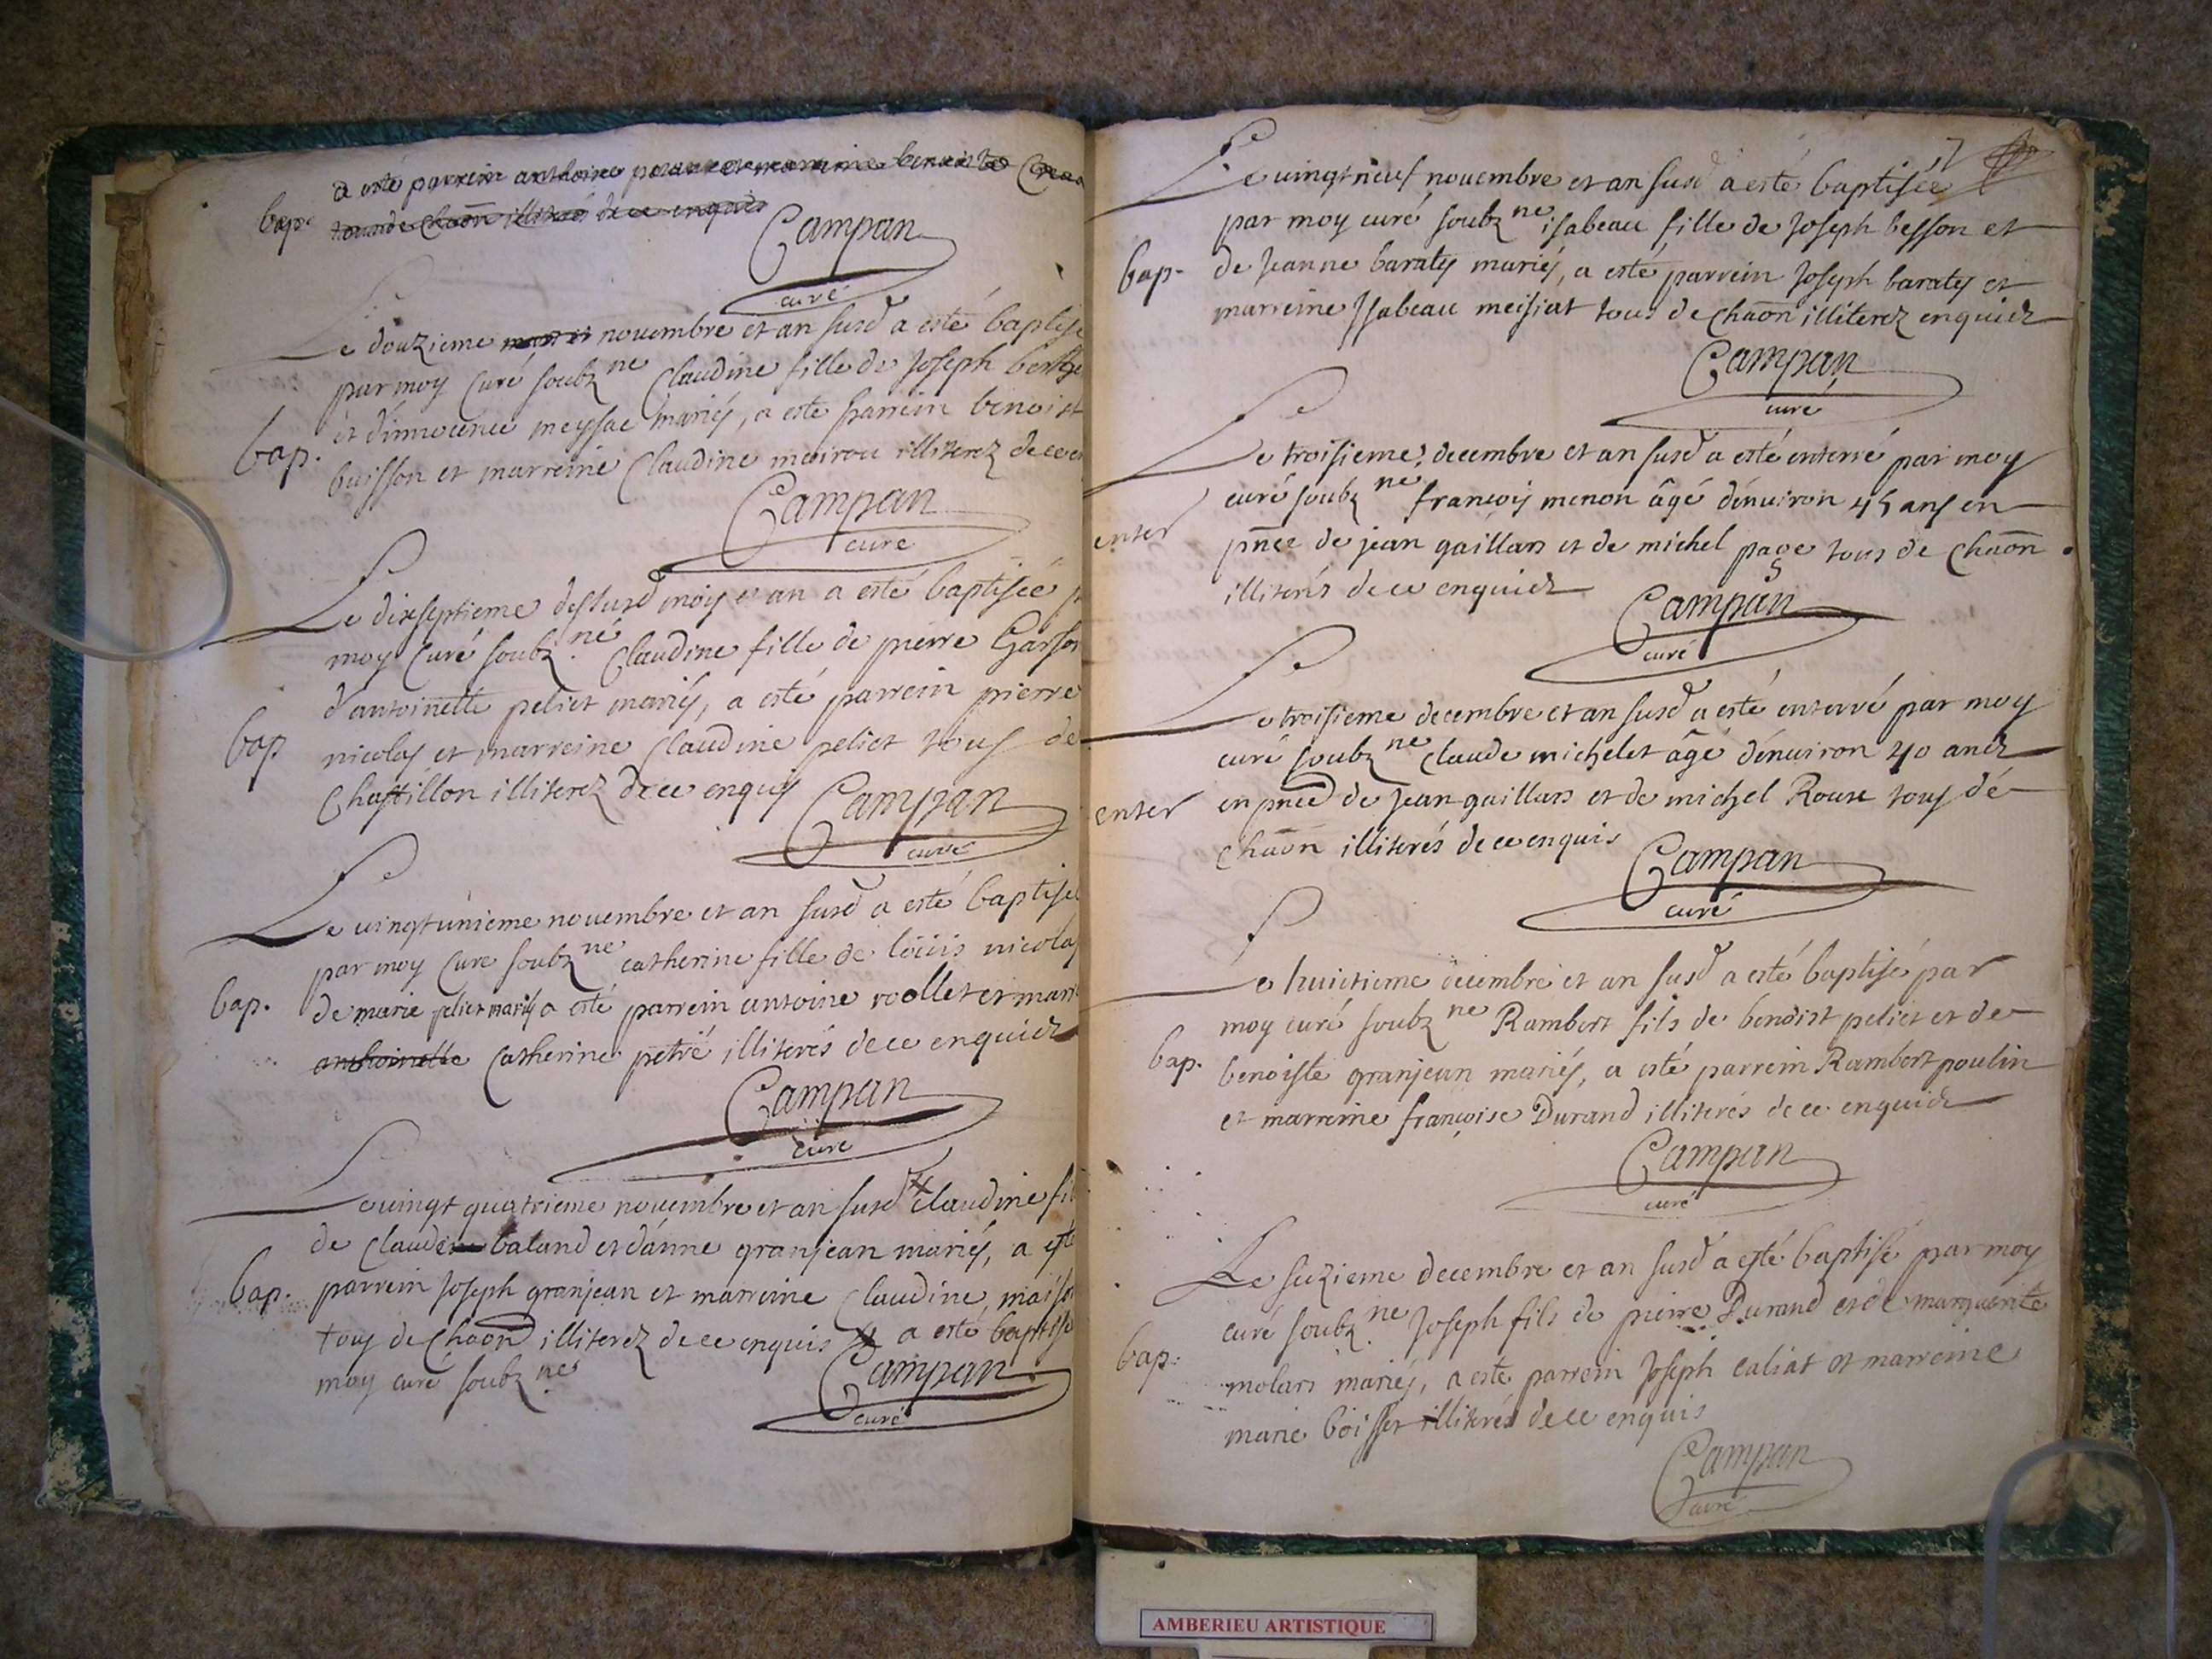 a esté parrein anthoine
bap.
Campan
curé
Le douzieme novembre et an susd a esté baptise
par moy Curé soubz ne Claudine fille de Joseph
et d'innocence meyssac mariés, a esté parrein benoist
bap.
buisson et marreine Claudine meirou illiterez de ce
Campan
curé
Le dixseptieme dessusd moys et an a esté baptisée
moy Curé soubz ne Claudine fille de pierre Garson
d'antoinette peliet mariés, a esté parrein pierre
bap
nicolas et marreine Claudine peliet tous de
Chastillon illiterez de ce enquis
Campan
curé
Le vingtunieme novembre et an susd a esté baptisée
par moy Cure soubz ne catherine fille de loüis nicolas
bap.
de marie peliet mariés a esté parrein antoine rollet et marr
anthoinette Catherine petré illiterés de ce enquidz
Campan
curé
Le vingt quatrieme novembre et an susd Claudine fil
de Claude baland et d'anne granjean mariés, a esté
bap.
parrein Joseph granjean et marreine Claudine
tous de Chaõn illiterez de ce enquis a esté baptise
moy curé soubz ne
Campan
curé
17
Le vingt neuf novembre et an susd a esté baptisée
par moy curé soubz ne isabeau fille de Joseph besson et
bap.
de Jeanne baraty mariés, a esté parrein Joseph baraty et
marreine Isabeau meisiat tous de Chaõn illiterez enquidz
Campan
curé
Le troisieme decembre et an susd a esté enterré par moy
curé soubz ne françois menon âgé d'environ 45 ans en
enter
pñce de jean gaillars et de michel page tous de Chaõn
illiterés de ce enquidz
Campan
curé
Le troisieme decembre et an susd a esté enterré par moy
curé soubz ne Claude michelet âgé d'environ 40 andz
enter
en pñce de Jean gaillars et de michel Roux tous de
Chaõn illiterés de ce enquis
Campan
curé
Le huictieme decembre et an susd a esté baptisé par
moy curé soubz ne Rambert fils de benoist peliet et de
bap.
benoiste granjean mariés, a esté parrein Rambert poulin
et marreine françoise Durand illiterés de ce enquidz
Campan
curé
Le seizieme decembre et an susd a esté baptisé par moy
curé soubz ne Joseph fils de pierre Durand et de marguerite
bap.
molars mariés, a esté parrein Joseph caliat et marreine
marie boisset illiterés de ce enquis
Campan
curé
AMBERIEU ARTISTIQUE